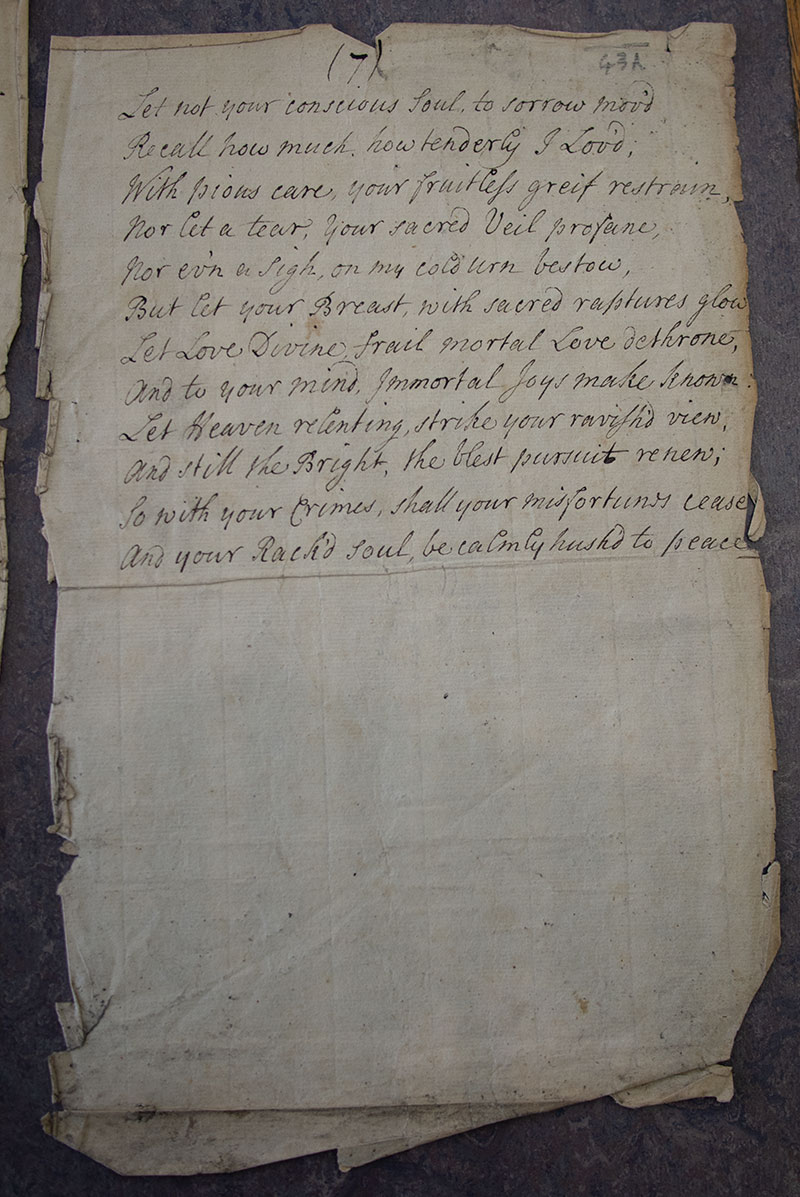 (7)
43A
Let not your conscious Soul, to sorrow mov'd
Recall how much, how tenderly I Lov'd;
With pious care, your fruitless greif restrain,
Nor let a tear, Your sacred Veil profane,
Nor ev'n a sigh, on my cold urn bestow,
But let your Breast, with sacred raptures glow
Let Love Divine, frail mortal Love dethrone,
And to your mind, Immortal Joys make known:
Let Heaven relenting, strike your ravish'd view,
And still the Bright, the blest pursuit renew;
So with your Crimes, shall your misfortunes cease
And your Rack'd Soul, be calmly hush'd to peace